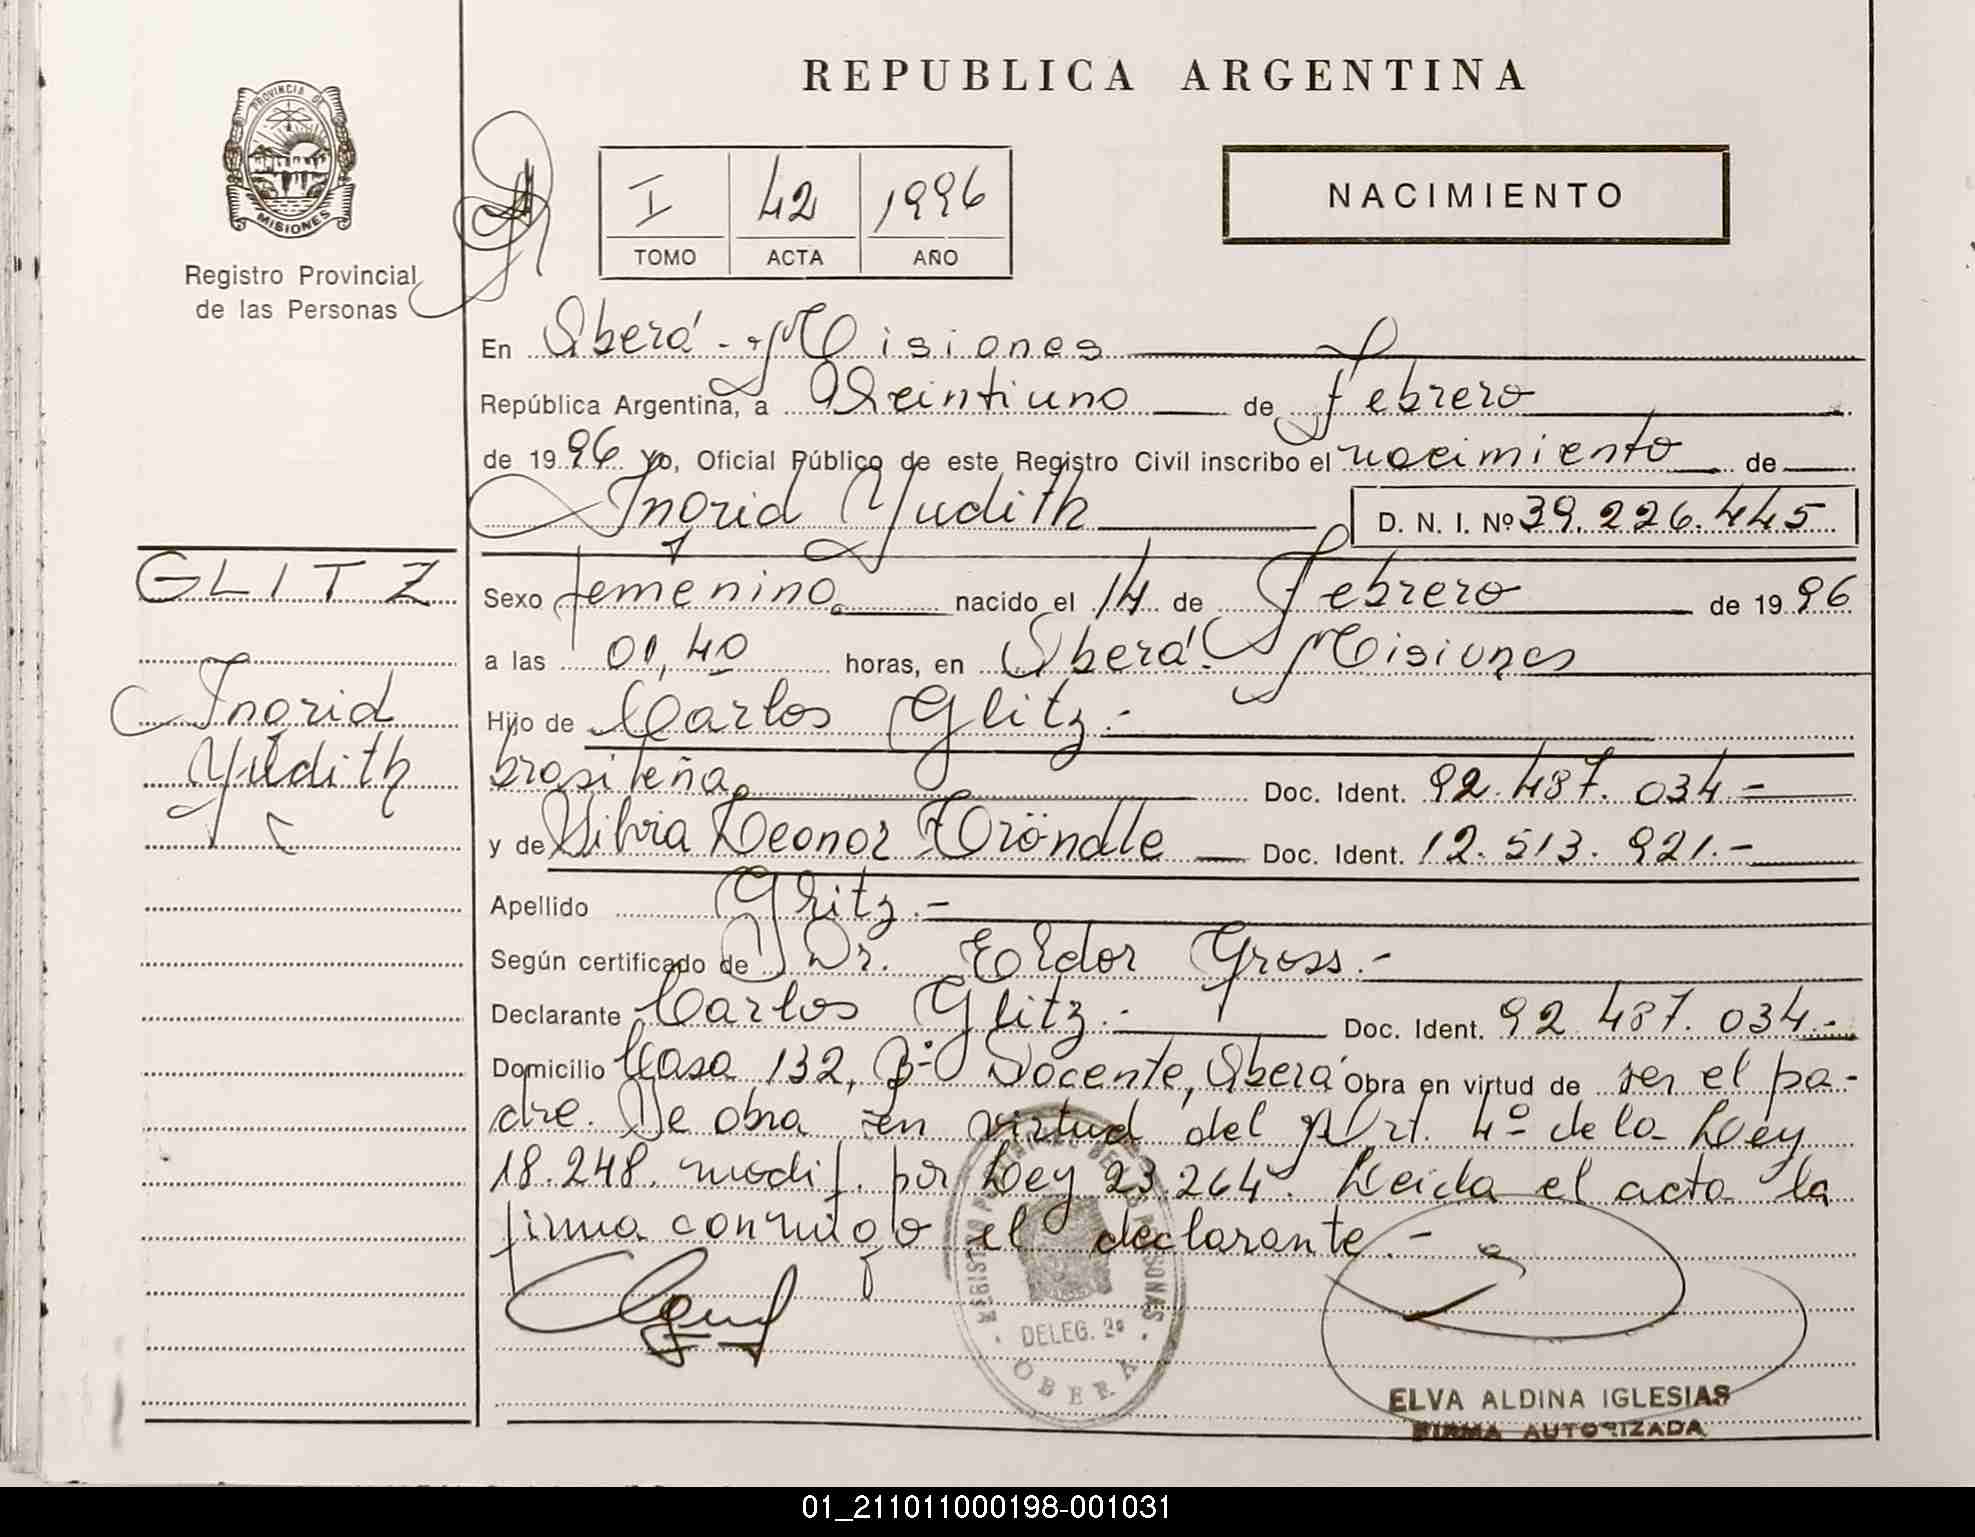 REPUBLICA ARGENTINA
PROVINCIA DE
MISIONES
Registro Provincial
de las Personas
I 42 1996
TOMO ACTA AÑO
NACIMIENTO
En Oberá - Misiones
República Argentina, a Veintiuno de febrero
de 1996 Yo, Oficial Público de este Registro Civil inscribo el nacimiento de
Ingrid Yudith D. N. I. Nº 39.226.445
GLITZ
Ingrid
Yudith
Sexo femenino nacido el 14 de Febrero de 1996
a las 01,40 horas, en Oberá - Misiones
Hijo de Carlos Glitz.-
brasileña Doc. Ident. 92.487.034.-
y de Silvia Leonor Tröndle Doc. Ident. 12.513.921.-
Apellido Glitz.-
Según certificado de Dr. Eldor Gross.-
Declarante Carlos Glitz.- Doc. Ident. 92.487.034.-
Domicilio Casa 132, Bº Docente, Oberá Obra en virtud de ser el pa-
dre. Se obra en virtud del Art. 4º de la Ley
18.248. modif. por Ley 23.264. Leida el acta la
firma conmigo el declarante.-
REGISTRO PROVINCIAL DE LAS PERSONAS
DELEG. 2ª
OBERA
ELVA ALDINA IGLESIAS
FIRMA AUTORIZADA
01_211011000198-001031